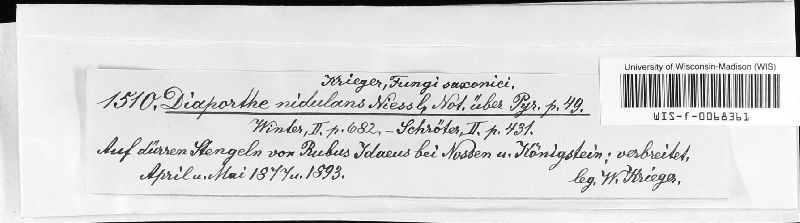 Krieger, Fungi saxonici.
1510. Diaporthe nidulans Niessl, Not. über Pyr. p. 49.
Winter, II. p. 682. – Schröter, II. p. 431.
Auf dürren Stengeln von Rubus Idaeus bei Nossen u. Königstein; verbreitet.
April u. Mai 1877 u. 1893.
leg. W. Krieger.
University of Wisconsin-Madison (WIS)
WIS-f-0068361